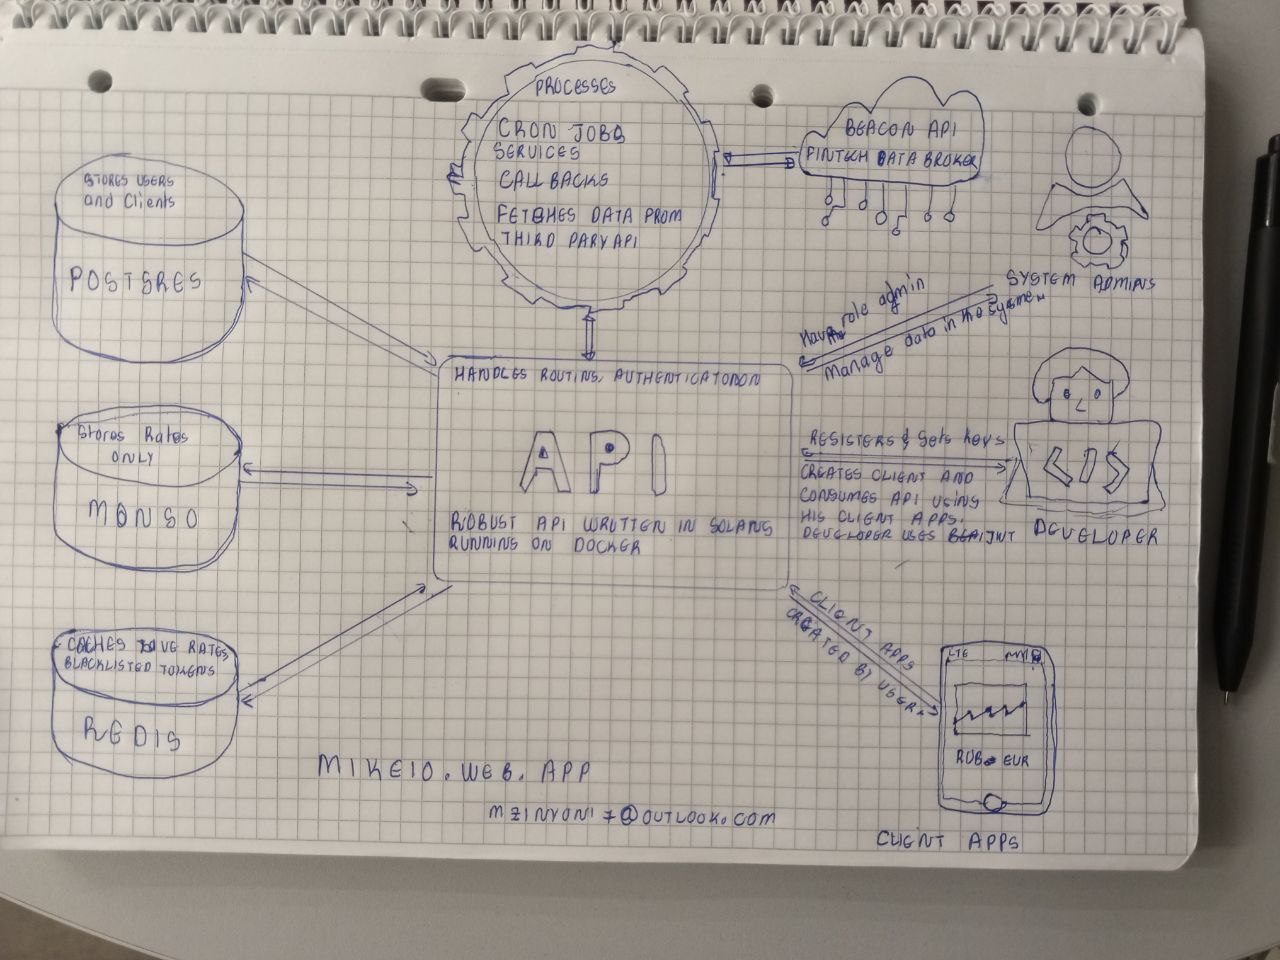 PROCESSES
CRON JOBS
SERVICES
CALLBACKS
FETCHES DATA FROM
THIRD PARYAPI
BEACON API
FINTECH DATA BROKER
STORES USERS
and Clients
POSTGRES
SYSTEM ADMINS
Have role admin
Manage data in the system
HANDLES ROUTING, AUTHENTICATOION
API
ROBUST API WRITTEN IN GOLANG
RUNNING ON DOCKER
Stores Rates
ONLY
MONGO
REGISTERS & Gets Keys
CREATES CLIENT AND
CONSUMES API USING
HIS CLIENT APPS.
DEVELOPER USES JWT
</>
DEVELOPER
CACHES RATES,
BLACKLISTED TOKENS
REDIS
CLIENT APPS
CREATED BY USER
LTE
RUB EUR
CLIENT APPS
MIKE10.WEB.APP
MZINYONI7@OUTLOOK.COM